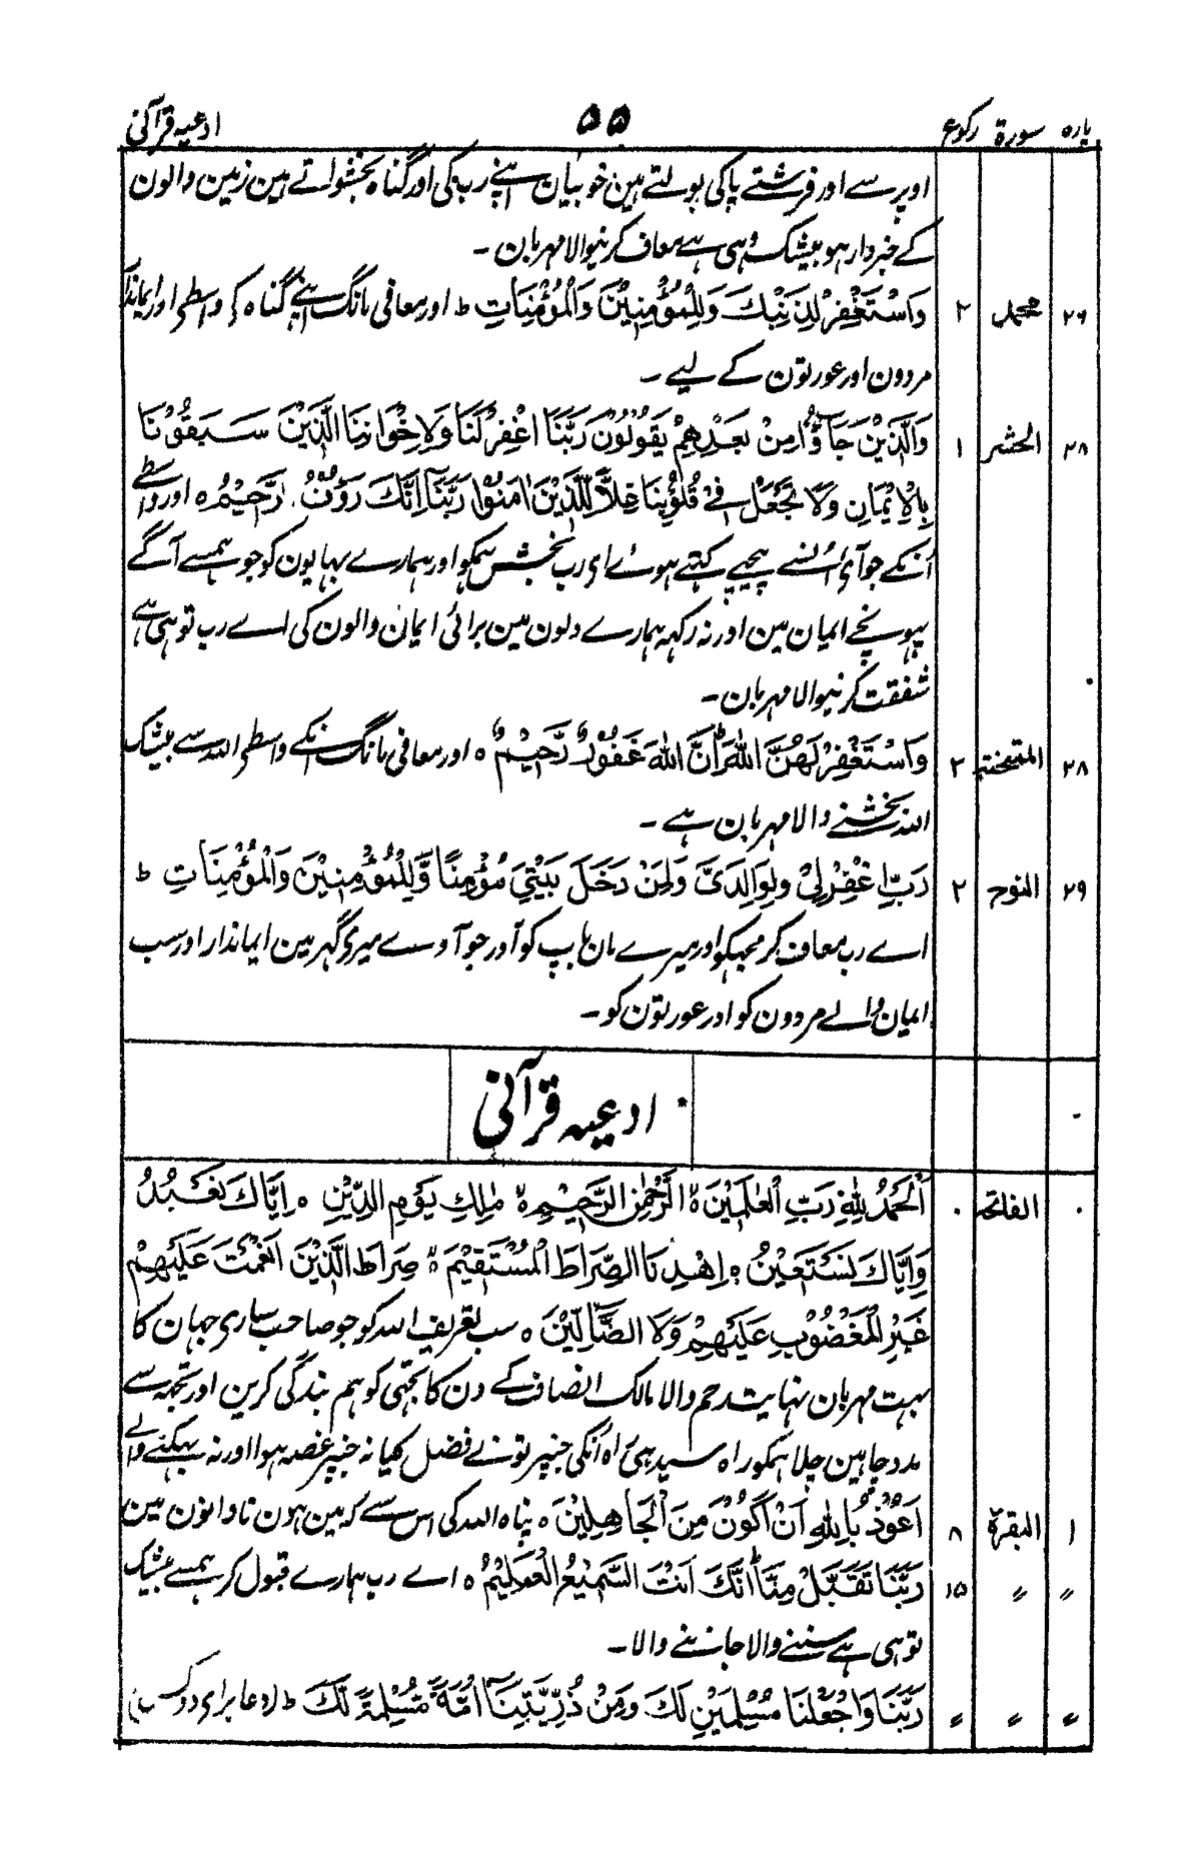 پارہ سورۃ رکوع ۵۵ ادعیہ قرآنی
اوپر سے اور فرشتے پاکی بولتے ہین خوبیان اپنے رب کی اور گناہ بخشواتے ہین زمین والون
کے خبردار ہو بیشک وُہی ہے معاف کرنیوالا مہربان ۔
۲۶ محمد ۲ وَاسْتَغْفِرْ لِذَنْۢبِكَ وَلِلْمُؤْمِنِيْنَ وَالْمُؤْمِنَاتِ ط اور معافی مانگ اپنے گناہ کے واسطے اور ایماندار
مردون اور عورتون کے لیے ۔
۲۸ الحشر ۱ وَالَّذِيْنَ جَآؤُا مِنْ بَعْدِهِمْ يَقُوْلُوْنَ رَبَّنَا اغْفِرْ لَنَا وَلِاِخْوَانِنَا الَّذِيْنَ سَبَقُوْنَا
بِالْاِيْمَانِ وَلَا تَجْعَلْ فِيْ قُلُوْبِنَا غِلًّا لِّلَّذِيْنَ اٰمَنُوْا رَبَّنَآ اِنَّكَ رَؤُفٌ رَّحِيْمٌ ہ اور واسطے
اُنکے جو آئے اُنسے پیچھے کہتے ہوئے ای رب بخش ہمکو اور ہمارے بہایون کو جو ہمسے آگے
پہونچے ایمان مین اور نہ رکہہ ہمارے دلون مین برائی ایمان والون کی اے رب تو ہی ہے
شفقت کرنیوالا مہربان ۔
۲۸ الممتحنۃ ۲ وَاسْتَغْفِرْ لَهُنَّ اللّٰهَ اِنَّ اللّٰهَ غَفُوْرٌ رَّحِيْمٌ ہ اور معافی مانگ انکے واسطے اللہ سے بیشک
اللہ بخشنے والا مہربان ہے ۔
۲۹ النوح ۲ رَبِّ اغْفِرْ لِيْ وَلِوَالِدَيَّ وَلِمَنْ دَخَلَ بَيْتِيَ مُؤْمِنًا وَّلِلْمُؤْمِنِيْنَ وَالْمُؤْمِنَاتِ ط
اے رب معاف کر مجہکو اور میرے مان باپ کو اور جو آوے میری گہر مین ایماندار اور سب
ایمان والے مردون کو اور عورتون کو ۔
ادعیہ قرآنی
۰ الفاتحہ ۰ اَلْحَمْدُ لِلّٰهِ رَبِّ الْعٰلَمِيْنَ ہ الرَّحْمٰنِ الرَّحِيْمِ ہ مٰلِكِ يَوْمِ الدِّيْنِ ہ اِيَّاكَ نَعْبُدُ
وَاِيَّاكَ نَسْتَعِيْنُ ہ اِهْدِنَا الصِّرَاطَ الْمُسْتَقِيْمَ ہ صِرَاطَ الَّذِيْنَ اَنْعَمْتَ عَلَيْهِمْ
غَيْرِ الْمَغْضُوْبِ عَلَيْهِمْ وَلَا الضَّآلِّيْنَ ہ سب تعریف اللہ کو جو صاحب ساری جہان کا
بہت مہربان نہایت رحم والا مالک انصاف کے دن کا تجہی کو ہم بندگی کرین اور تجہہ سے
مدد چاہین چلا ہمکو راہ سیدہی راہ اُنکی جنپر تو نے فضل کیا نہ جنپر غصہ ہوا اور نہ بہکنے والے
۱ البقرۃ ۸ اَعُوْذُ بِاللّٰهِ اَنْ اَكُوْنَ مِنَ الْجَاهِلِيْنَ ہ پناہ اللہ کی اس سے کہ مین ہون نادانون مین
〃 〃 ۱۵ رَبَّنَا تَقَبَّلْ مِنَّا اِنَّكَ اَنْتَ السَّمِيْعُ الْعَلِيْمُ ہ اے رب ہمارے قبول کر ہمسے بیشک
تو ہی ہے سننے والا جاننے والا ۔
〃 〃 〃 رَبَّنَا وَاجْعَلْنَا مُسْلِمَيْنِ لَكَ وَمِنْ ذُرِّيَّتِنَآ اُمَّةً مُّسْلِمَةً لَّكَ ط (دعا برای دوکس)